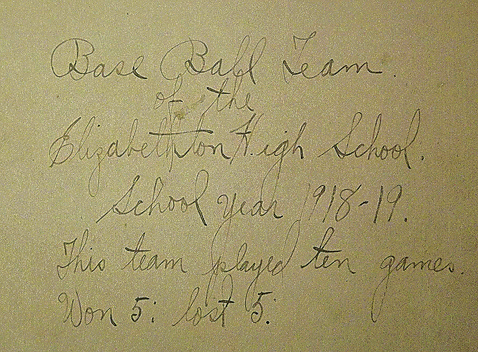 Base Ball Team.
of the
Elizabethton High School.
School year 1918-19.
This team played ten games.
Won 5; lost 5.